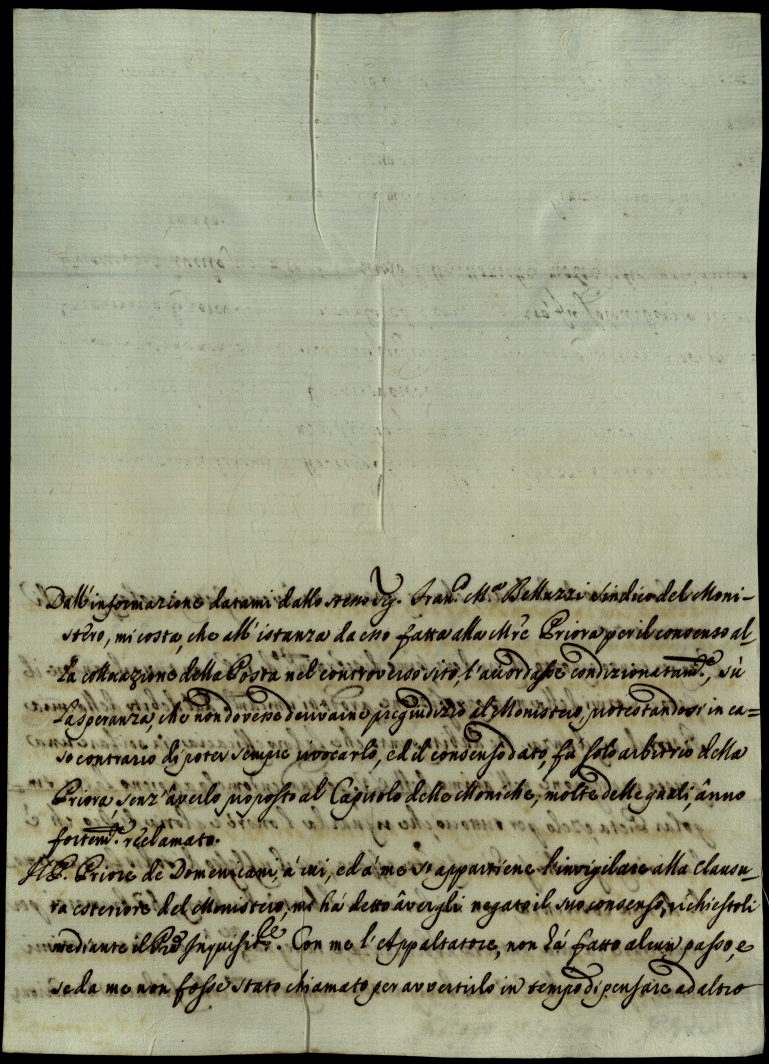 Dall'informazione datami dallo stesso Sig.r Fran.co M.a Belluzzi Sindico del Moni-
stero, mi costa, che all'istanza da esso fatta alla M.re Priora per il consenso al-
la collocazione della Posta nel controverso sito, l'accordasse condizionatam.e, sù
la speranza, che non dovesse derivarne pregiudizio al Monistero, protestandosi in ca=
so contrario di poter sempre rivocarlo, ed il consenso dato, fù solo arbitrio della
Priora, senz'âverlo proposto al Capitolo delle Moniche, molte delle quali, ânno
fortem.e reclamato.
Il P. Priore de Domenicani, à cui, ed à me s'appartiene l'invigilare alla clausu-
ra esteriore del Monistero, mi hà detto âvergli negato il suo consenso, richiestoli
mediante il Inquisit.re. Con me l'Appaltatore, non hà fatto alcun passo, e
se da me non fosse stato chiamato per avvertirlo in tempo di pensare ad altro